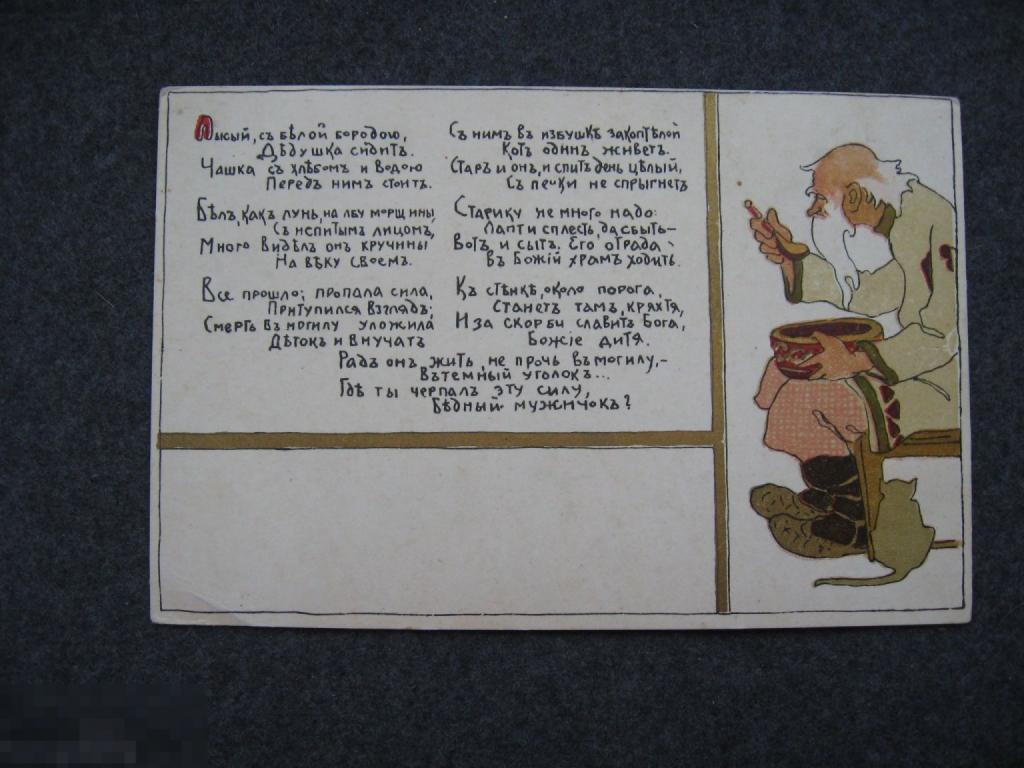 Лысый, съ бѣлой бородою,
Дѣдушка сидитъ.
Чашка съ хлѣбомъ и водою
Передъ нимъ стоитъ.
Бѣлъ, какъ лунь, на лбу морщины,
Съ испитымъ лицомъ,
Много видѣлъ онъ кручины
На вѣку своемъ.
Все прошло; пропала сила,
Притупился взглядъ;
Смерть въ могилу уложила
Дѣтокъ и внучатъ
Съ нимъ въ избушкѣ закоптѣлой
Котъ одинъ живетъ.
Старъ и онъ, и спитъ день цѣлый,
Съ печки не спрыгнетъ
Старику не много надо:
Лапти сплесть, да сбыть—
Вотъ, и сытъ. Его отрада
въ Божій храмъ ходить.
Къ стѣнкѣ, около порога,
Станетъ тамъ, кряхтя,
И за скорби славитъ Бога,
Божіе дитя.
Радъ онъ жить, не прочь въ могилу,—
Въ темный уголокъ...
Гдѣ ты черпалъ эту силу,
Бѣдный мужичокъ?